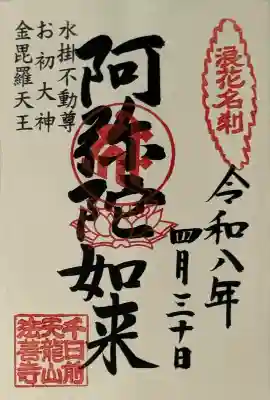 浪花名刹
令和八年
四月三十日
阿弥陀如来
水掛不動尊
お初大神
金毘羅天王
千日前
天龍山
法善寺